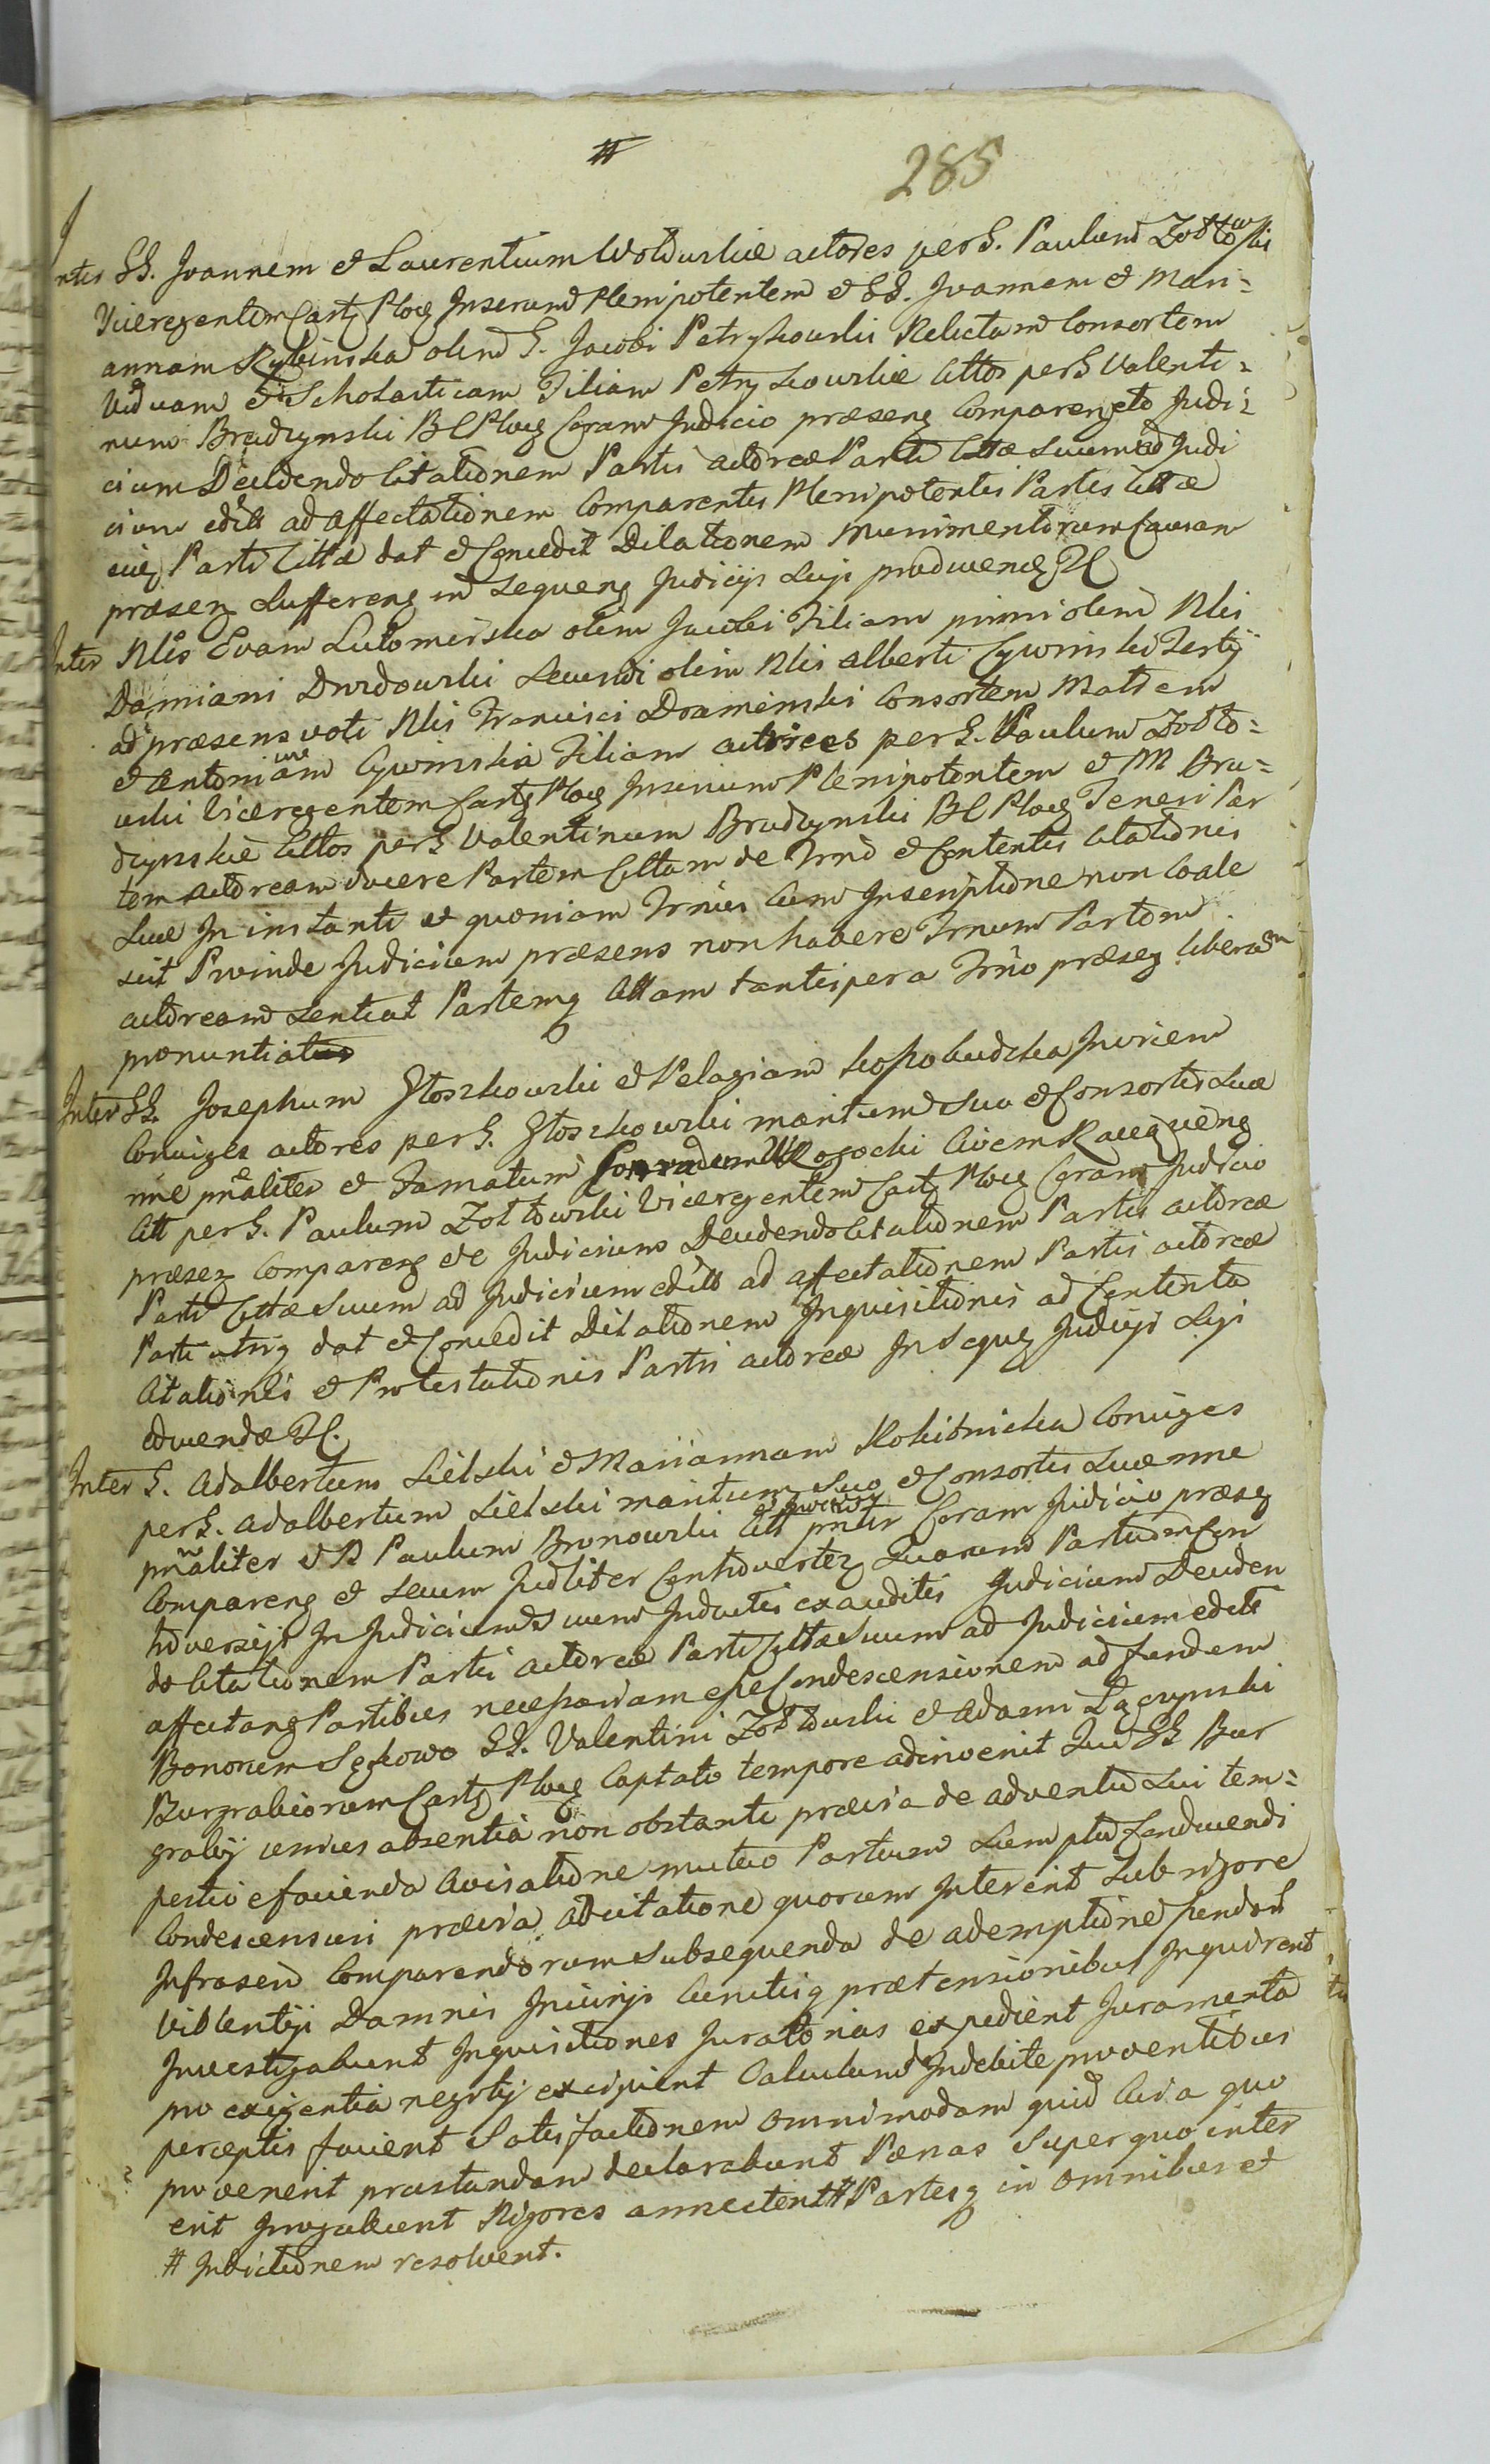 #
285
Inter GG. Joannem et Laurentium Wolduskie actores per G. Paulum Zołtowski
Vicegerentem Castr Ploc Inserum Plenipotentem et GG. Joannem et Mari=
annam Rybinska olim G. Jacobi Petrykowski Relictam Consortem
Viduam et Scholasticam Filiam Petrykowskie Cittos per G Valenti=
num Brudzynski BC Ploc Coram Judicio præsenq Comparenq eto Judi=
cium Decidendo Citationem Partis actoreæ Parti Cittæ Suum ad Judi
cium editt ad affectationem Comparentis Plenipotentis Partis Cittæ
eiq Parti Citta dat et Concedit Dilationem Munimentorum Causam
præsen Sufferenq in Sequenq Judicijs Suji producenq PC
Inter Nles Evam Lutomirska olim Jacobi Filiam primi olim Nlis
Damiani Drozdowski Secundi olim Nlis Alberti Cywinski Tertij
ad præsens voti Nlis Francisci Dramiński Consortem Matrem
et Antoniam Cywinska Filiam actrices per G. Paulum Zołto=
wski Vicegerentem Castr Ploc Inserum Plenipotentem et M Bru=
dzynskie Cittos per G Valentinum Brudzynski BC Ploc Teneri Par
tem actoream docere Partem Cittam de Trno et Contentis Citationis
Suæ In instanti et quoniam Trnus Cum Inscriptione non Coale
scit Proinde Judicium præsens non habere Trnum Partem
actoream Sentiat Partemq Cittam tantisper a Trno præseq liberam
pronuntiat
Inter GG. Josephum Głoskowski et Pelagiam Kossobudzka Invicem
Coniuges actores per G. Głoskowski maritum Suo et Consortis Suæ
nne prnaliter et Famatum Conradum Rogocki Civem Raciąqieng
Citt per G. Paulum Zołtowski Vicegerentem Castr Ploc Coram Judicio
præseq Comparenq etc Judicium Decidendo Citationem Partis actoreæ
Parti Cittæ Suum ad Judicium editt ad affectationem Partis actoreæ
Parti utriq dat et Concedit Dilationem Inquisitionis ad Contenta
Citationis et Protestationis Partis actoreæ In Sequq Judicijs Suji
educendæ PC.
Inter G. Adalbertum Sielski et Mariannam Rokitnicka Coniuges
per G. Adalbertum Sielski maritum Suo et Consortis Suæ nne
prnaliter et R Paulum Bronowski Citt prnter Coram Judicio præseq
Comparenq et Secum Judliter Controverteq Quorum Partium Con
troversijs In Judicium Suum Inductis exauditis Judicium Deciden
do Citationem Partis actoreæ Parti Cittæ Suum ad Judicium editt
affectanq Partibus necessariam esse Condescensionem ad fundum
Bonorum Sękowo GG. Valentini Zołtowski et Adami Łączynski
Burgrabiorum Castr Ploc Captato tempore adinvenit Qui GG Bur
grabij unius absentia non obstanti prævia de adventu Sui tem=
pestive facienda Avisatione mutuo Partium Sumptu Conducendi
Condescensuri prævia adcitatione quorum Intererit Sub rigore
Infrascri Comparendorum Subsequenda de ademptione fundorum
Violentijs Damnis Injurijs Cunctisq prætensionibus Inquirent
Investigabunt Inquisitiones Juratorias expedient Juramenta
pro exigentia negotij excipient Calculum Indebite proventibus
perceptis facient Satisfactionem omnimodam quid Cui a quo
provenerit præstandam declarabunt Pænas Super quo inter
erit Irrogabunt Rigores annectent # Partesq in omnibus et
# Indictionem resolvent.